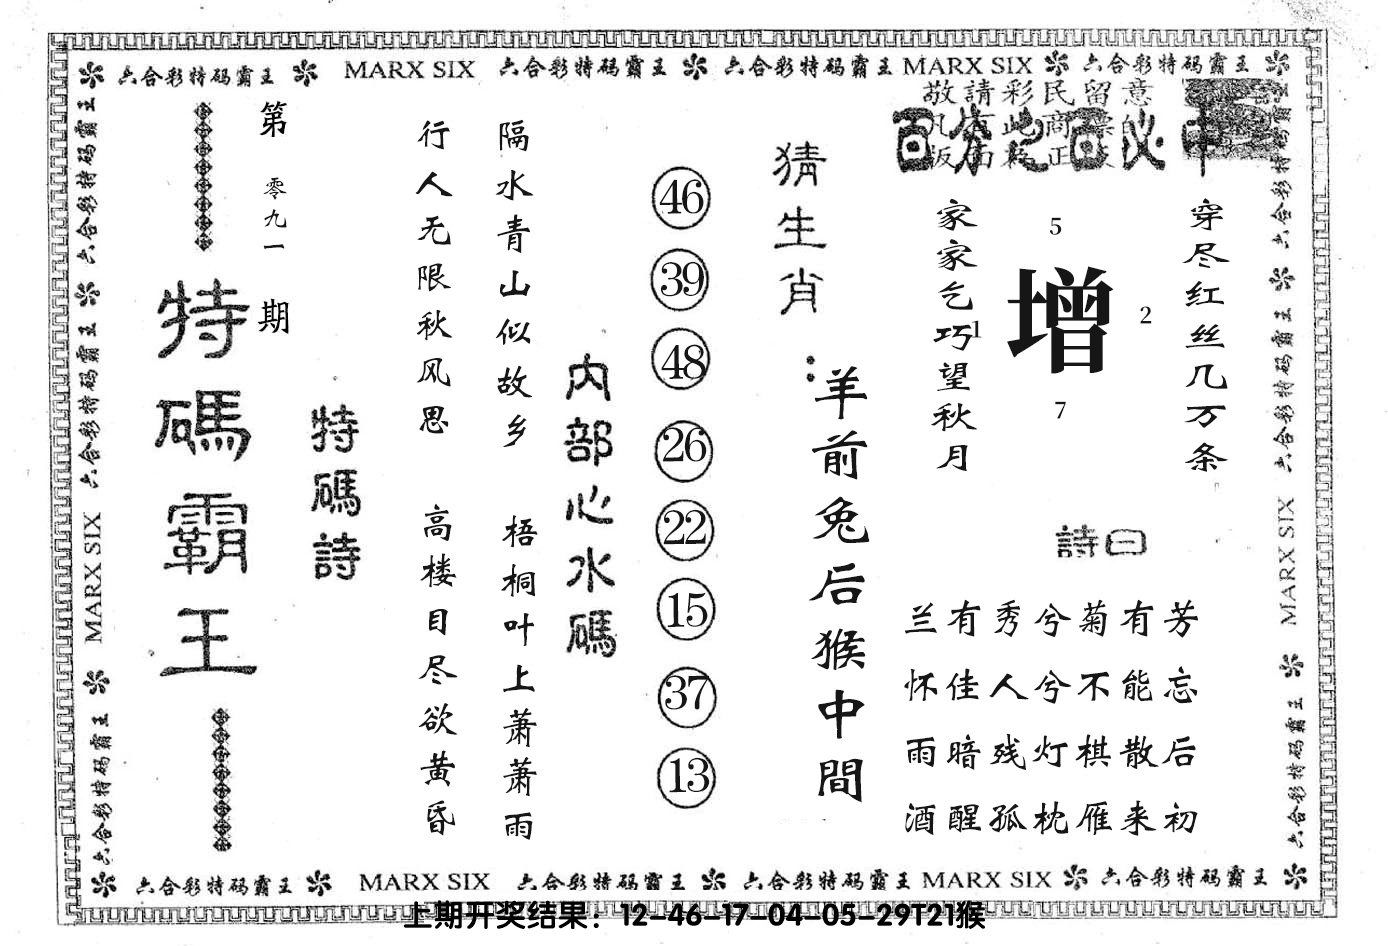 六合彩特码霸王 MARX SIX 六合彩特码霸王 六合彩特码霸王 MARX SIX 六合彩特码霸王
敬請彩民留意
百分之百必中
穿尽红丝几万条
家家乞巧望秋月
5
1
增
2
7
詩曰
兰有秀兮菊有芳
怀佳人兮不能忘
雨暗残灯棋散后
酒醒孤枕雁来初
猜生肖：
羊前兔后猴中間
46
39
48
26
22
15
37
13
内部心水碼
隔水青山似故乡
梧桐叶上萧萧雨
行人无限秋风思
高楼目尽欲黄昏
特碼詩
第零九一期
特碼霸王
六合彩特码霸王 六合彩特码霸王 MARX SIX 六合彩特码霸王
六合彩特码霸王 六合彩特码霸王 MARX SIX 六合彩特码霸王
六合彩特码霸王 MARX SIX 六合彩特码霸王 六合彩特码霸王 MARX SIX 六合彩特码霸王
上期开奖结果：12-46-17-04-05-29T21猴